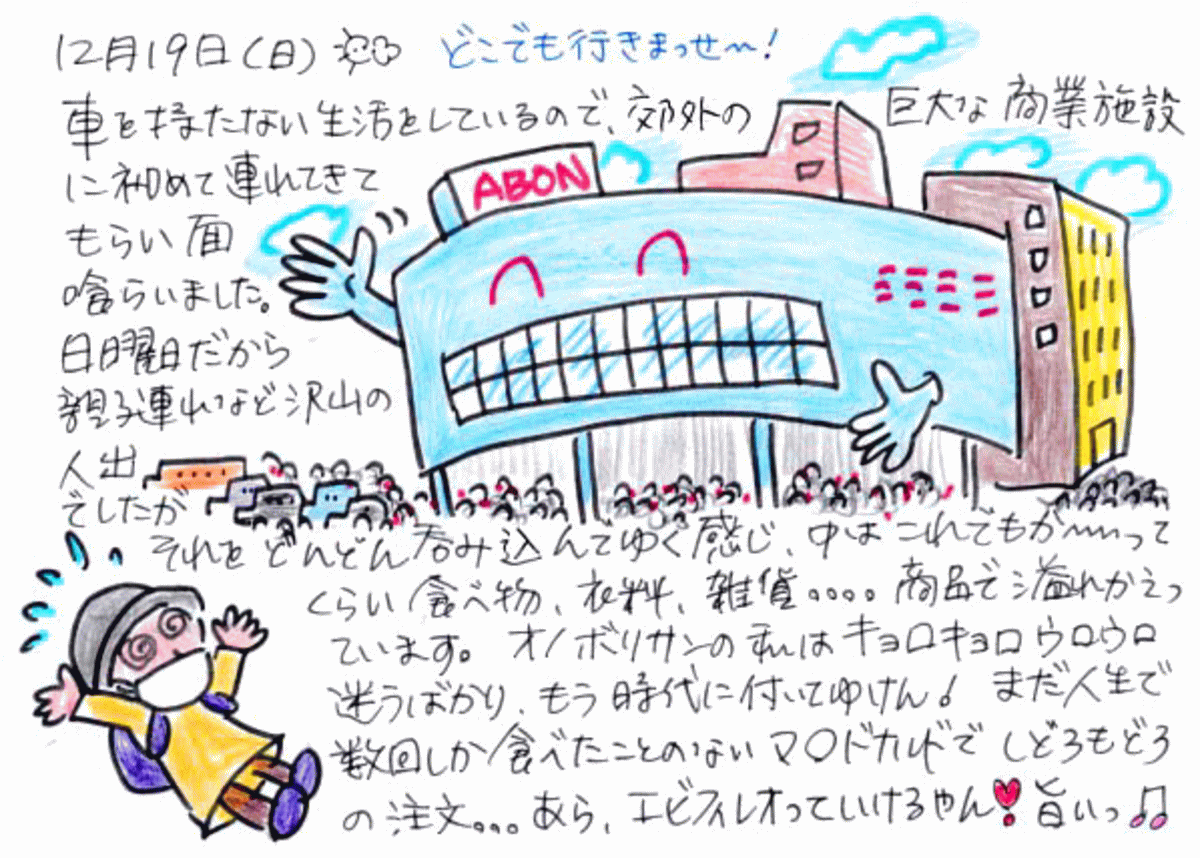 12月19日(日) どこでも行きまっせ〜!
車を持たない生活をしているので、郊外の 巨大な商業施設
に初めて連れてきて
もらい面
喰らいました。
日曜日だから
親子連れなど沢山の
人出
でしたが
ABON
それをどんどん呑み込んでゆく感じ、中はこれでもか〜って
くらい食べ物、衣料、雑貨。。。。商品で溢れかえっ
ています。オノボリサンの私はキョロキョロウロウロ
迷うばかり、もう時代に付いてゆけん! まだ人生で
数回しか食べたことのないマ〇ドナルドでしどろもどろ
の注文。。。あら、エビフィレオっていけるやん❣旨いっ♫